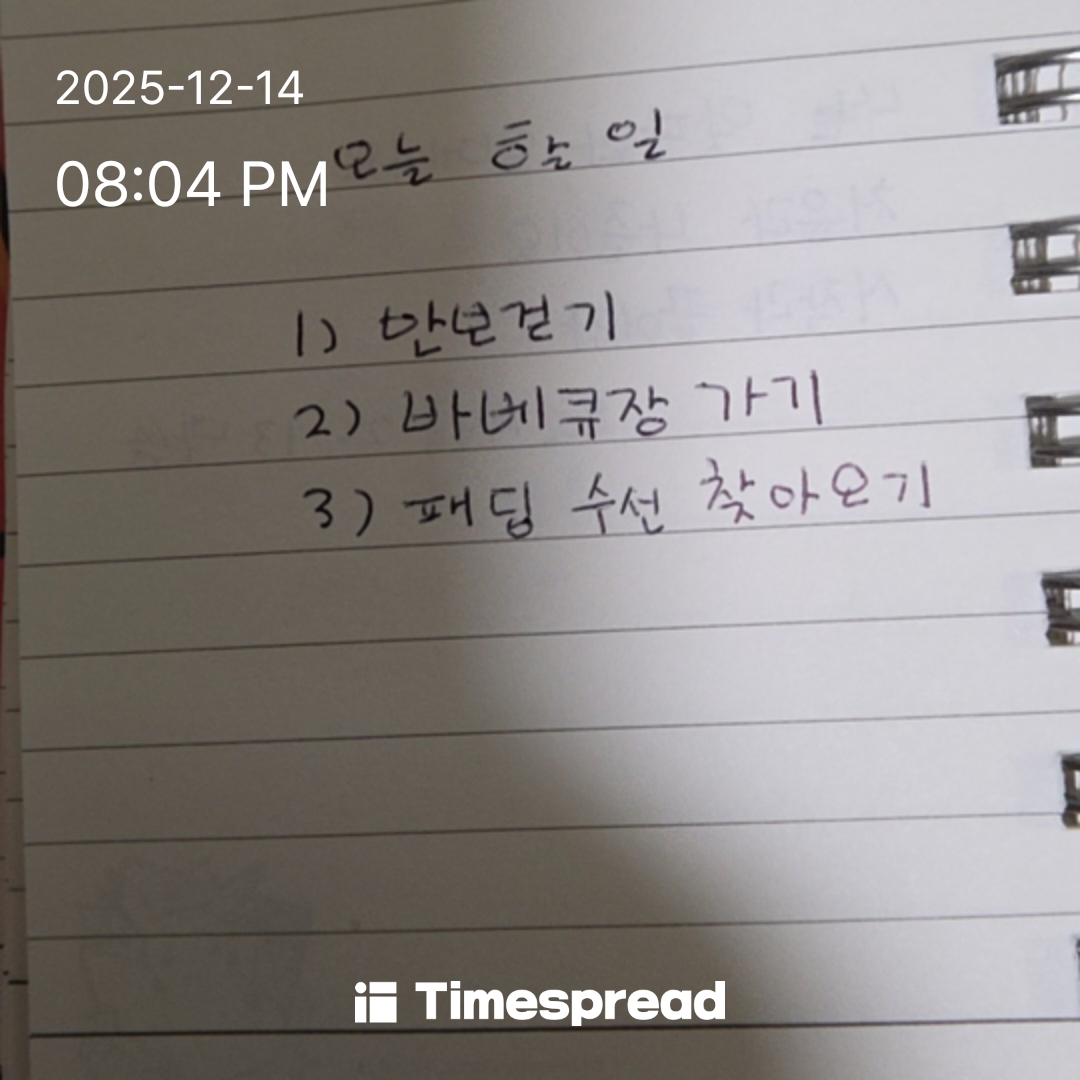 2025-12-14
08:04 PM
오늘 할 일
1) 만보걷기
2) 바베큐장 가기
3) 패딩 수선 찾아오기
Timespread